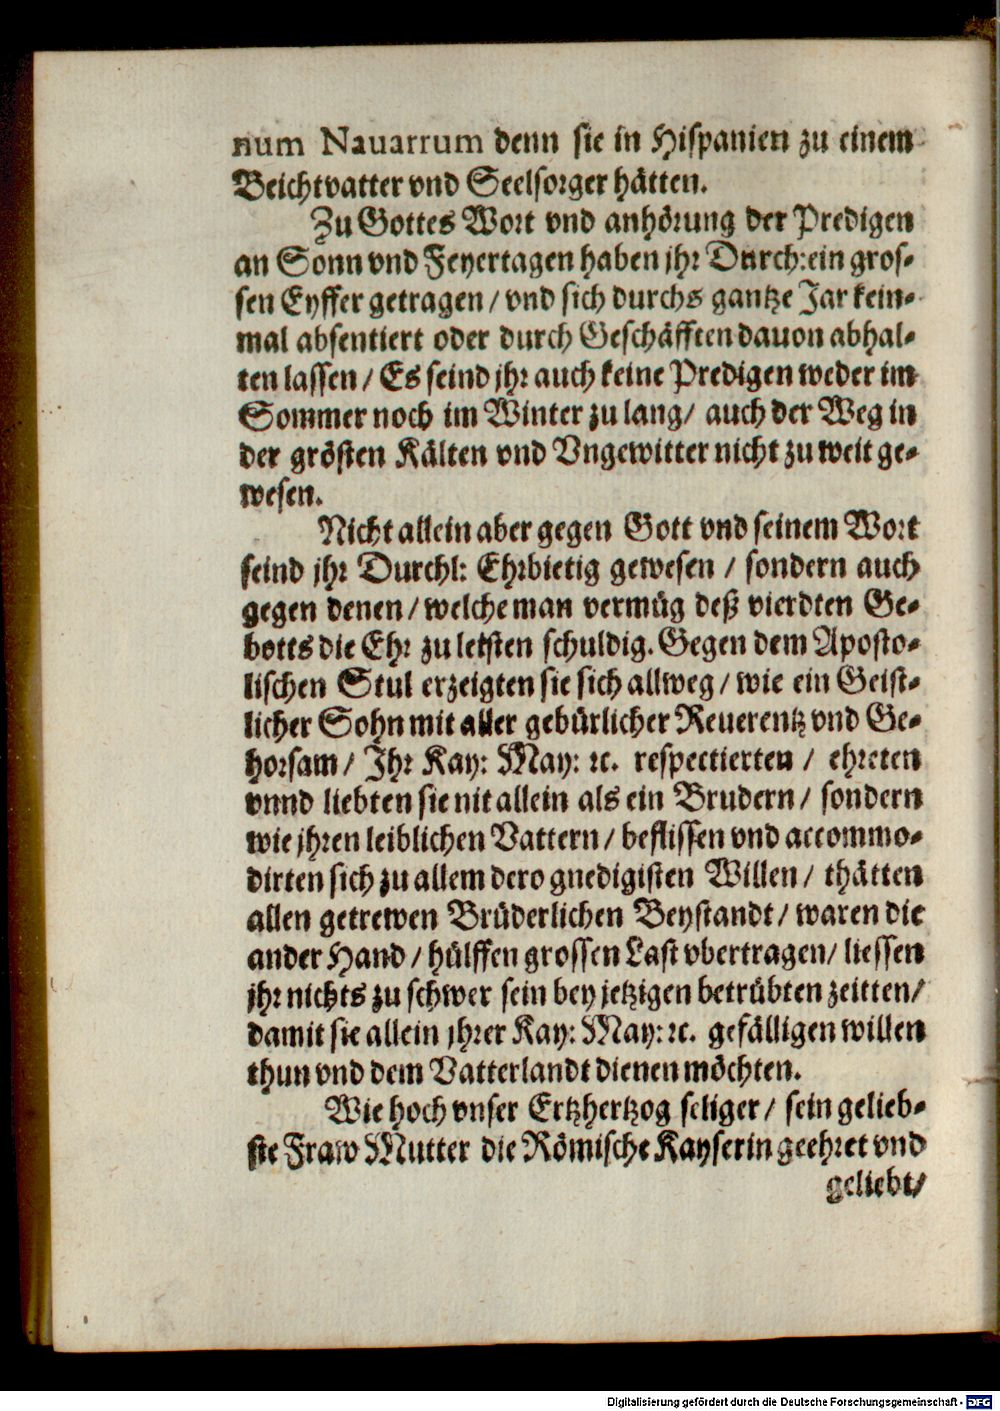 num Nauarrum denn sie in Hispanien zu einem
Beichtvatter vnd Seelsorger hätten.
Zu Gottes Wort vnd anhörung der Predigen
an Sonn vnd Feyertagen haben jhr Durch: ein gros-
sen Eyffer getragen / vnd sich durchs gantze Jar kein-
mal absentiert oder durch Geschäfften dauon abhal-
ten lassen / Es seind jhr auch keine Predigen weder im
Sommer noch im Winter zu lang / auch der Weg in
der grösten Kälten vnd Vngewitter nicht zu weit ge-
wesen.
Nicht allein aber gegen Gott vnd seinem Wort
seind jhr Durchl: Ehrbietig gewesen / sondern auch
gegen denen / welche man vermüg deß vierdten Ge-
botts die Ehr zu leisten schuldig. Gegen dem Aposto-
lischen Stul erzeigten sie sich allweg / wie ein Geist-
licher Sohn mit aller gebürlicher Reuerentz vnd Ge-
horsam / Ihr Kay: May: ꝛc. respectierten / ehreten
vnnd liebten sie nit allein als ein Brudern / sondern
wie jhren leiblichen Vattern / beflissen vnd accommo-
dirten sich zu allem dero gnedigisten Willen / thätten
allen getrewen Brüderlichen Beystandt / waren die
ander Hand / hülffen grossen Last vbertragen / liessen
jhr nichts zu schwer sein bey jetzigen betrübten zeitten /
damit sie allein jhrer Kay: May: ꝛc. gefälligen willen
thun vnd dem Vatterlandt dienen möchten.
Wie hoch vnser Ertzhertzog seliger / sein gelieb-
ste Fraw Mutter die Römische Kayserin geehret vnd
geliebt /
Digitalisierung gefördert durch die Deutsche Forschungsgemeinschaft - DFG